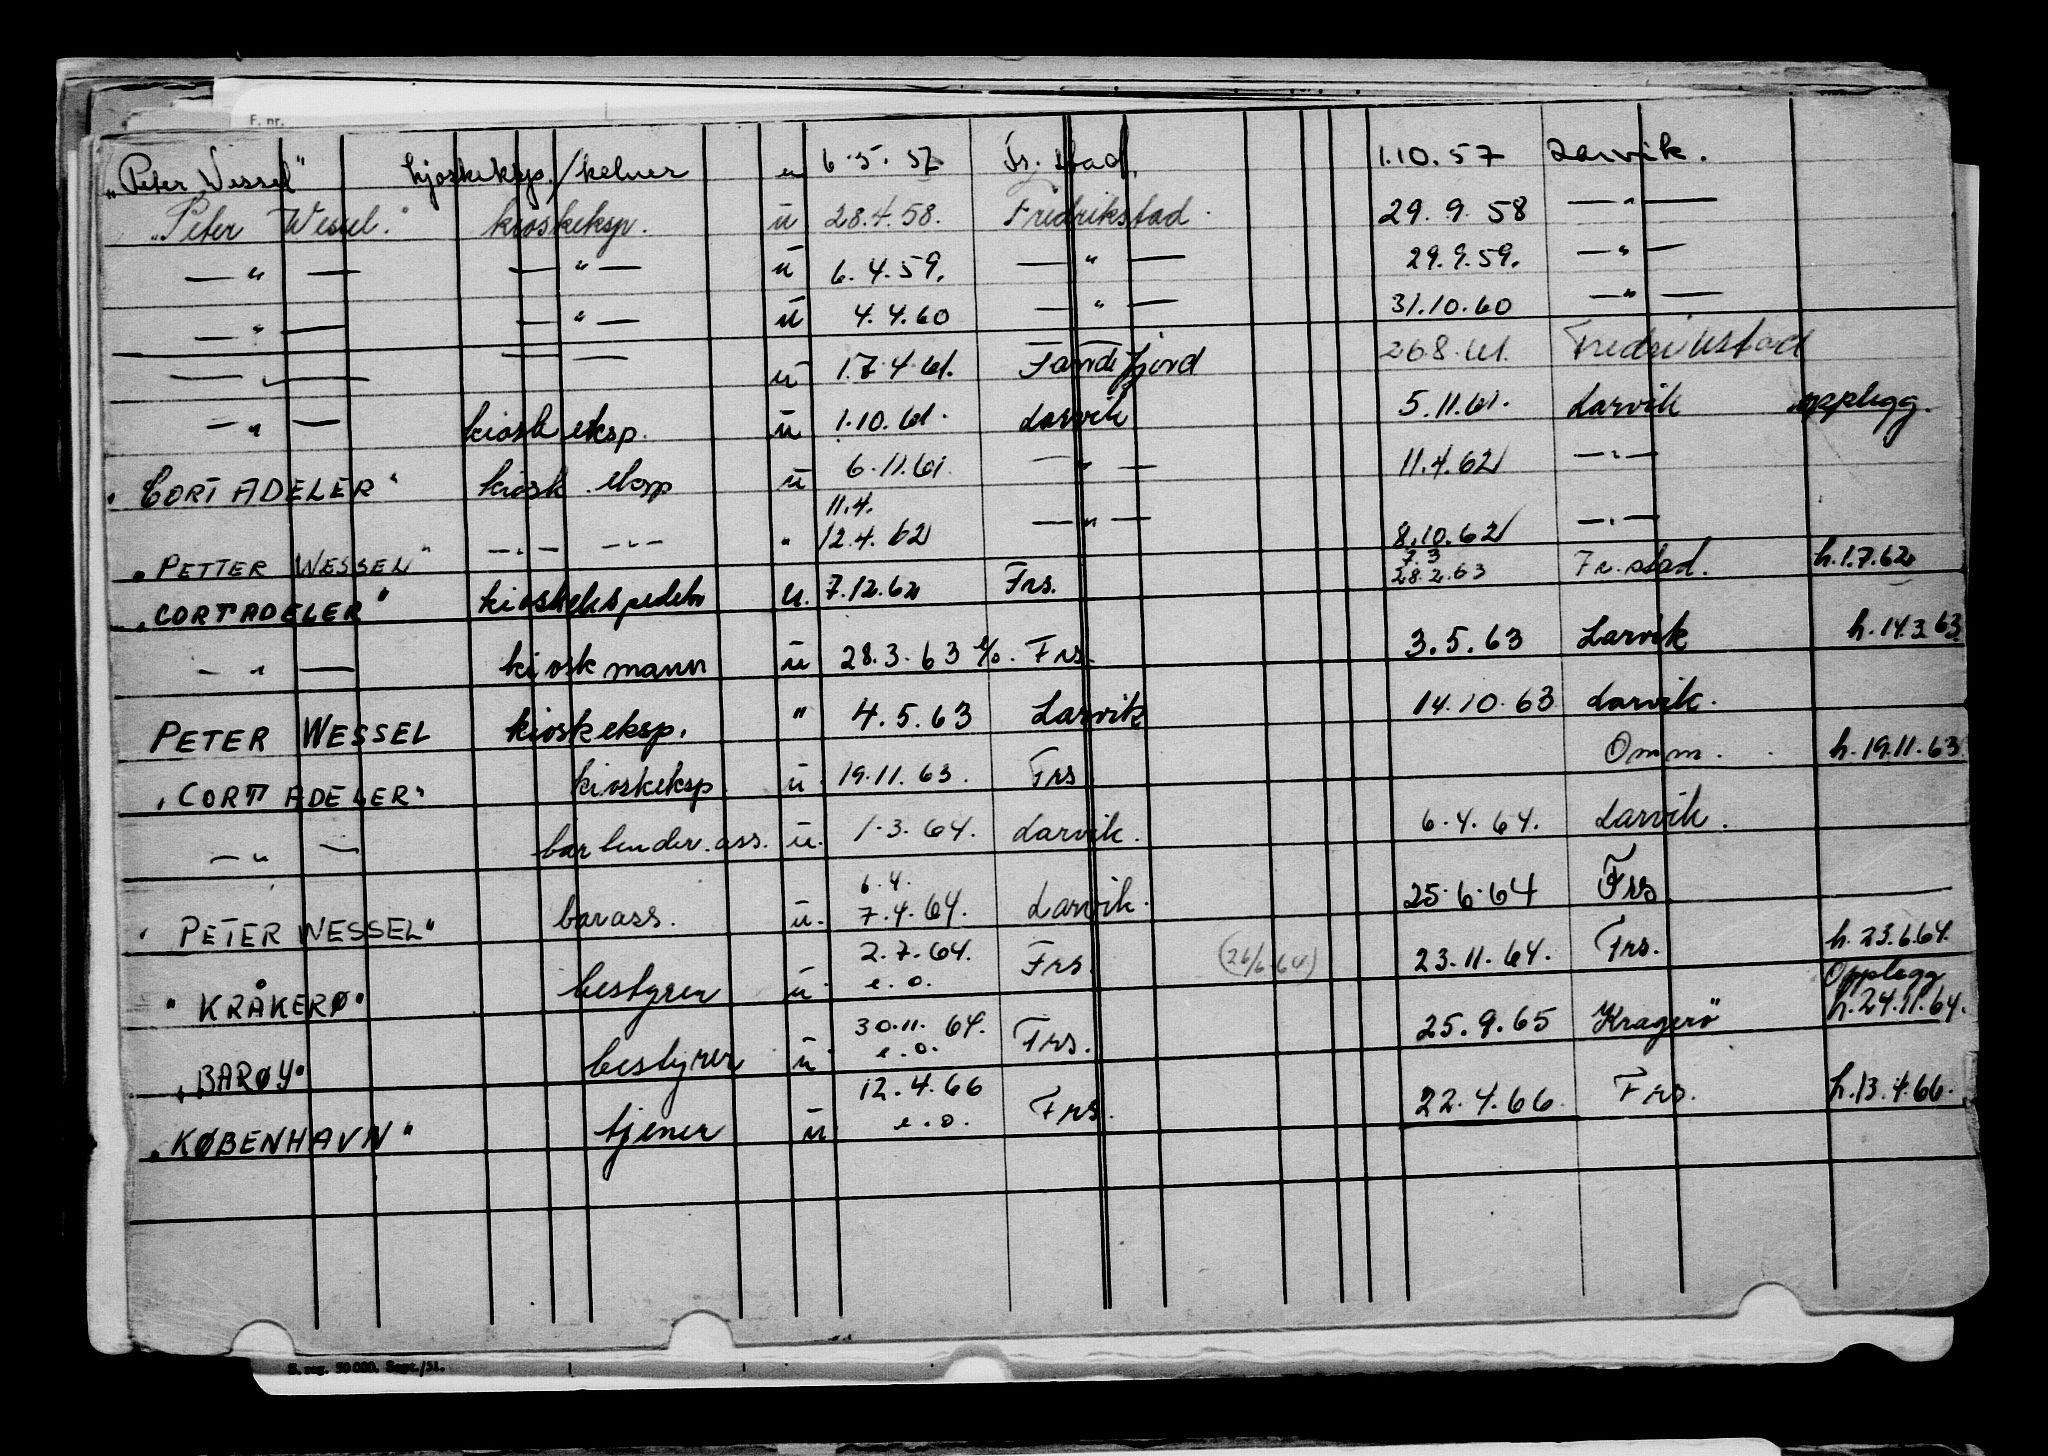 F. nr.
"Peter Wessel" kjoskeksp./kelner u 6.5.57 Fr.stad. 1.10.57 Larvik.
"Peter Wessel." kioskeksp. u 28.4.58. Fredrikstad. 29.9.58 — " —
— " — — " — u 6.4.59. — " — 29.9.59. — " —
— " — — " — u 4.4.60 — " — 31.10.60 — " —
— " — — " — u 17.4.61. Sandefjord 26.8.61. Fredrikstad
— " — kiosk eksp. u 1.10.61. Larvik 5.11.61. Larvik opplegg.
"CORT ADELER" kiosk.eksp u 6.11.61. — " — 11.4.62 — " —
11.4.
"PETTER WESSEL" — " — — " — " 12.4.62 — " — 8.10.62 — " —
7.3
"CORT ADELER" kioskekspeditør u. 7.12.62 Frs. 28.2.63 Fr.stad. h.1.7.62
— " — kioskmann u 28.3.63 e/o. Frs. 3.5.63 Larvik h.14.3.63
PETER WESSEL kioskeksp. " 4.5.63 Larvik 14.10.63 Larvik.
"CORT ADELER" kioskeksp. u. 19.11.63. Frs Omm. h.19.11.63
— " — bartender.ass. u. 1.3.64. Larvik. 6.4.64. Larvik.
6.4.
"PETER WESSEL" barass. u. 7.4.64. Larvik. 25.6.64 Frs —
"KRÅKERØ" bestyrer u 2.7.64. e.o. Frs. (26/6 64) 23.11.64. Frs. h.23.6.64.
Opplegg
"BARØY" bestyrer u 30.11.64. e.o. Frs. 25.9.65 Kragerö h.24.11.64.
"KØBENHAVN" tjener u 12.4.66 e.o. Frs. 22.4.66. Frs. h.13.4.66.
S. reg. 50 000. Sept./51.